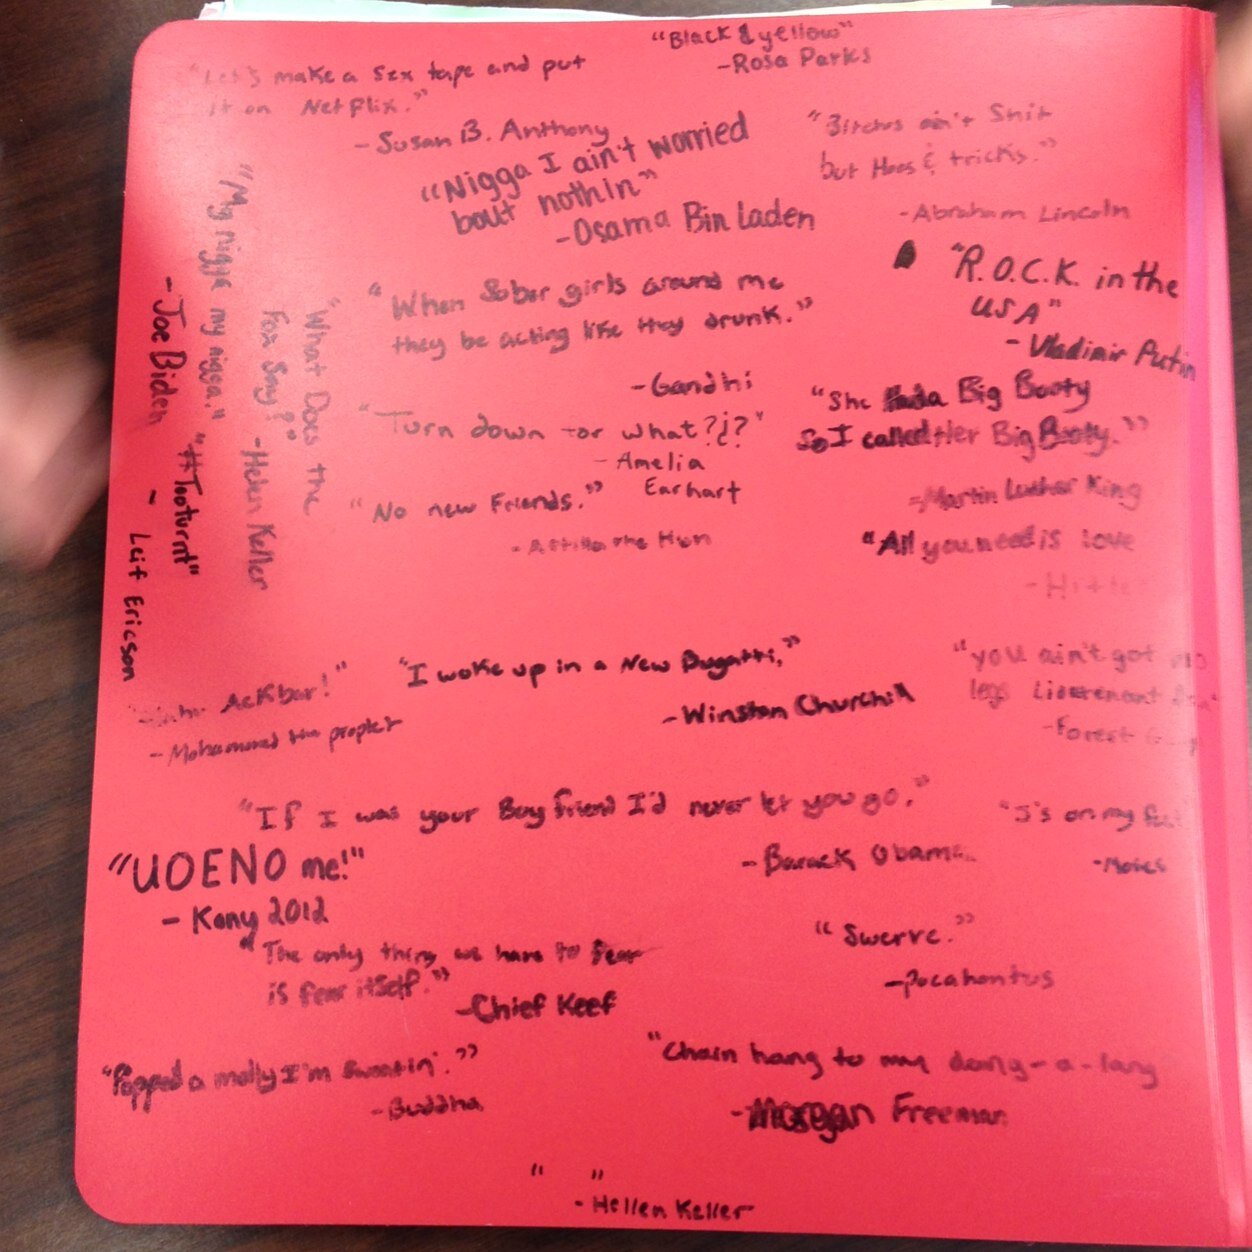 "Black & yellow"
-Rosa Parks
"Let's make a sex tape and put
it on Netflix."
-Susan B. Anthony
"Nigga I ain't worried
bout nothin"
-Osama Bin Laden
"Bitches ain't Shit
but Hoes & tricks."
-Abraham Lincoln
"My nigga my nigga."
-Joe Biden
"What Does the
Fox Say?"
-Helen Keller
"When Sober girls around me
they be acting like they drunk."
-Gandhi
"R.O.C.K. in the
USA"
- Vladimir Putin
"Turn down for what?¿?"
-Amelia
Earhart
"She had a Big Booty
So I called Her Big Booty."
-Martin Luther King
"#Tooturnt"
- Leif Ericson
"No new Friends."
-Attilla the Hun
"All you need is love
- Hitle
Ackbar!"
-Mohammed the prophet
"I woke up in a New Bugatti,"
-Winston Churchill
"you ain't got no
legs Lieutenant
-Forest
"If I was your Boyfriend I'd never let you go."
-Barack Obama
"J's on my feet
-Moses
"UOENO me!"
- Kony 2012
"The only thing we have to fear
is fear itself."
-Chief Keef
"Swerve."
-Pocahontus
"Popped a molly I'm sweatin'."
-Buddha
"Chain hang to my dang-a-lang
-Morgan Freeman
" "
-Hellen Keller